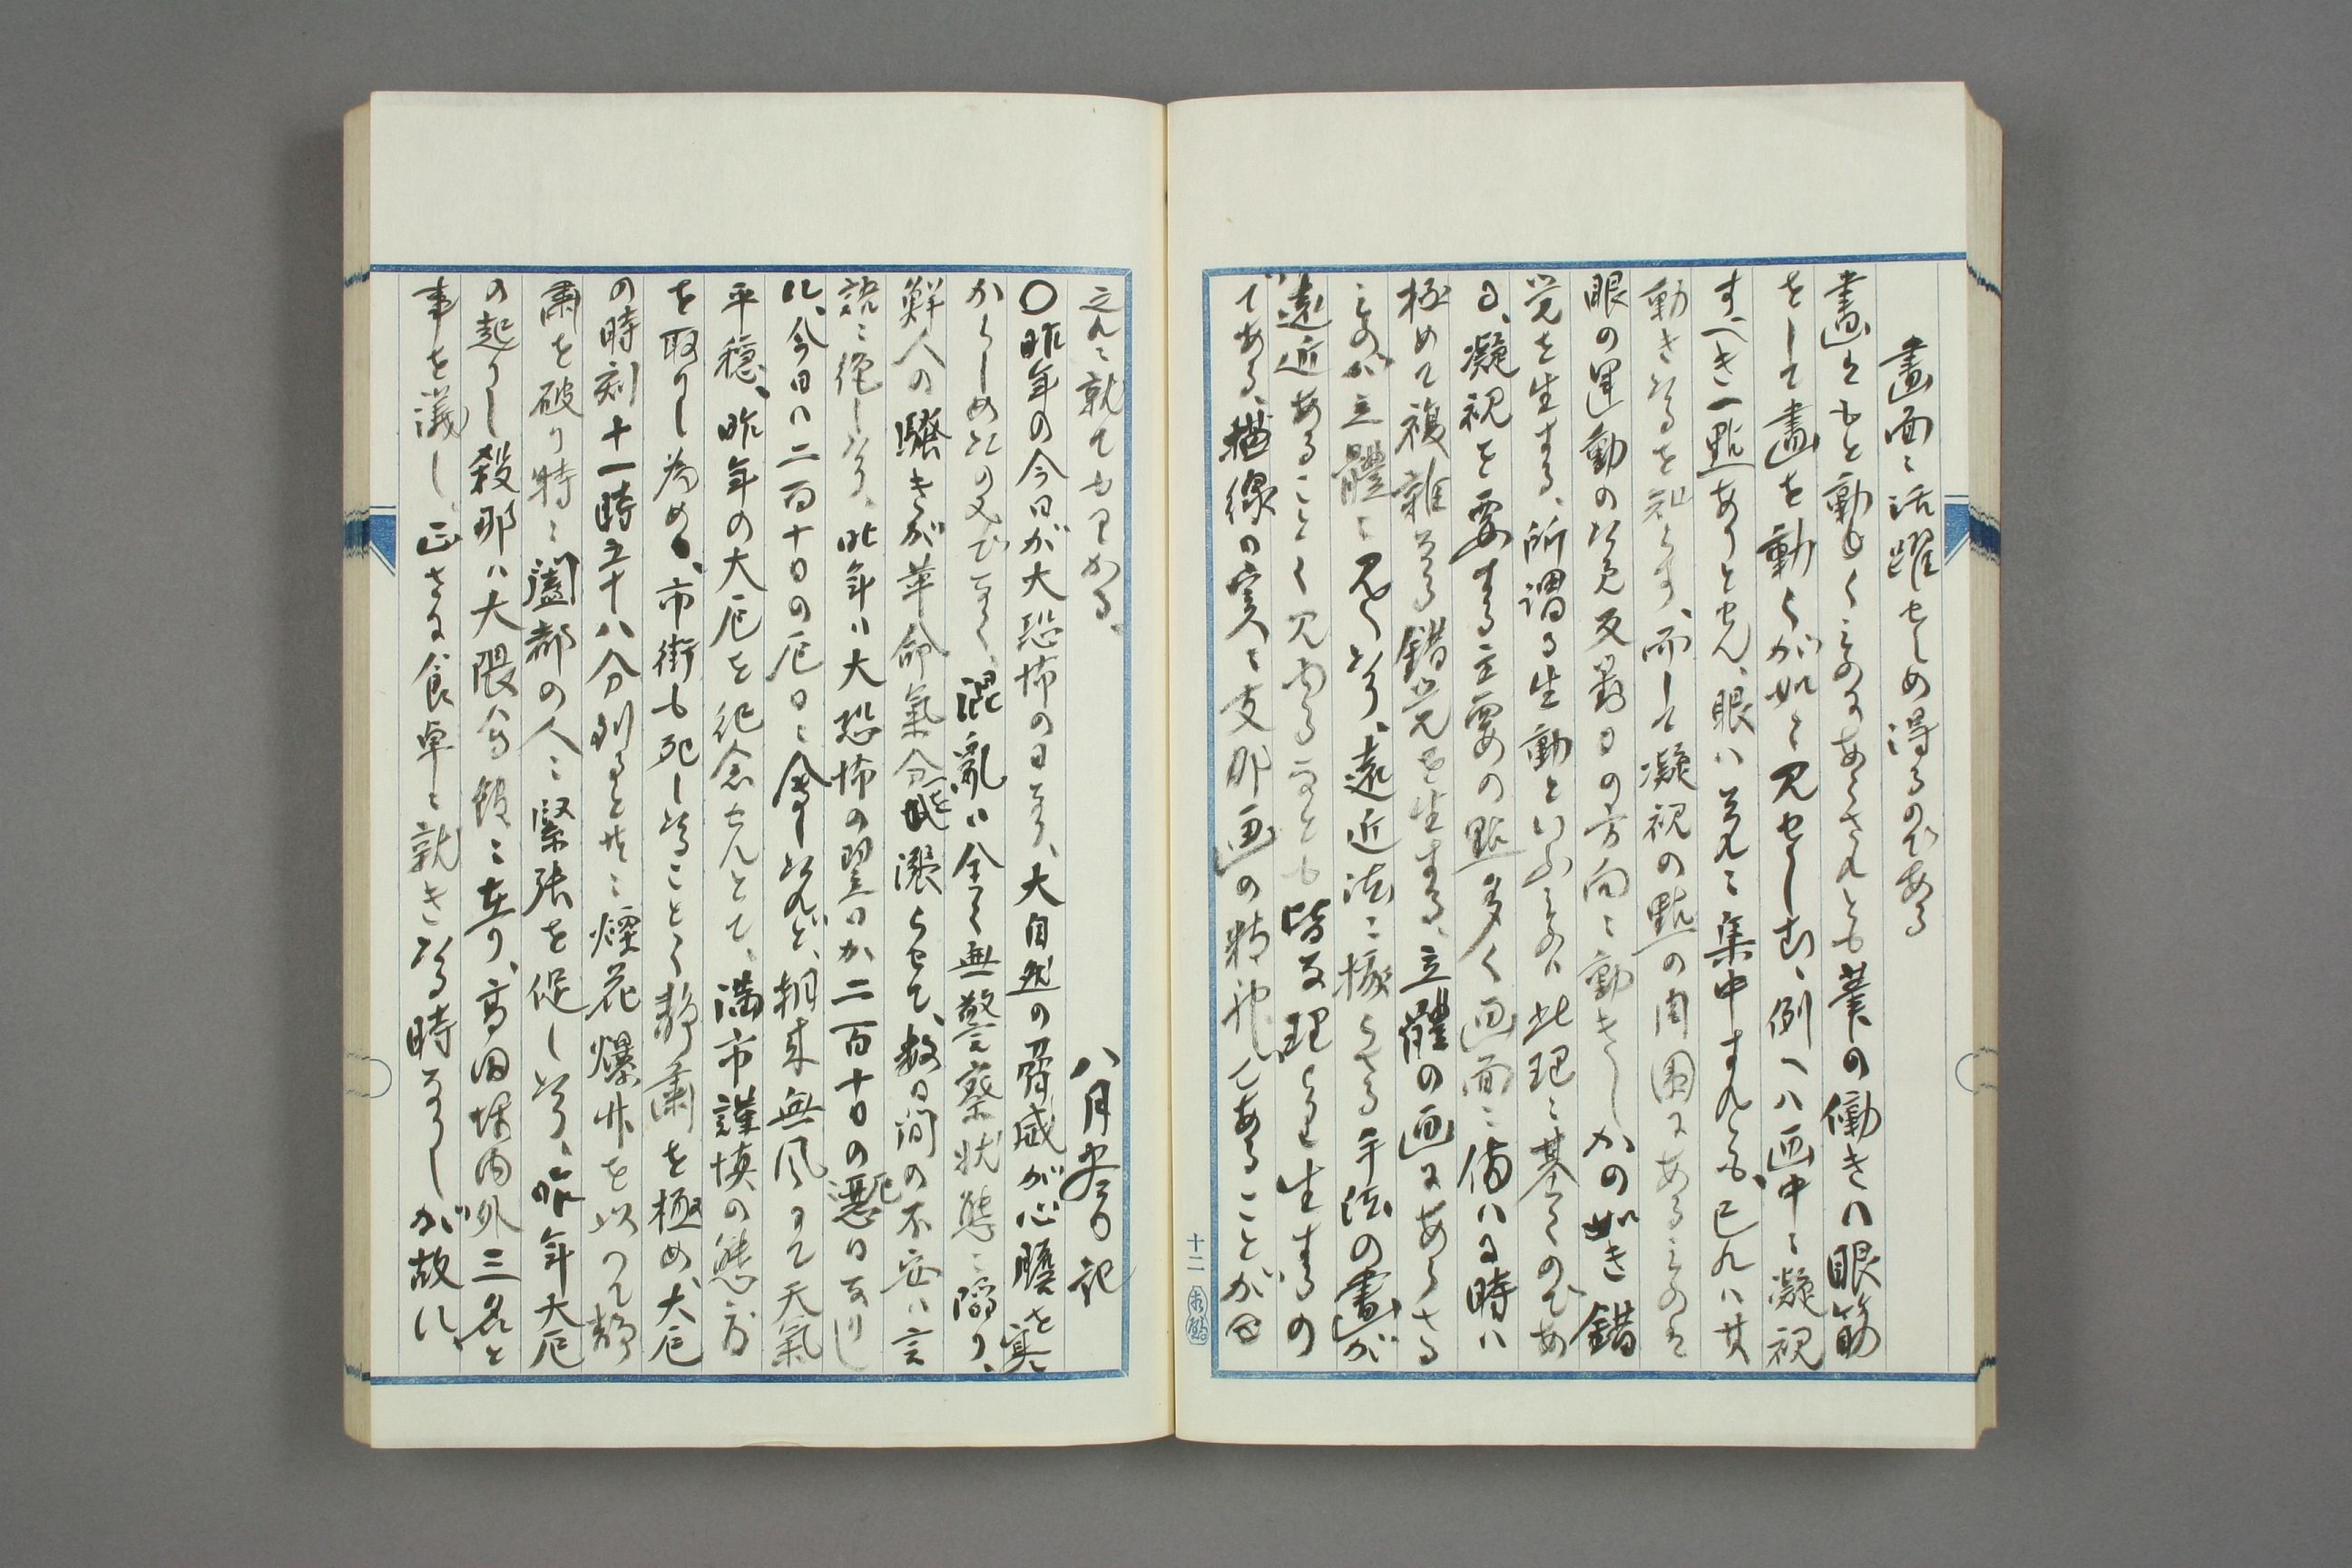 畫面ニ活躍せしめ得るのである
畫ハもと動くものにあらされとも筆の働きハ眼筋
をして畫を動くが如く見せしむ、例へハ画中ニ凝視
すへき一點ありとせん、眼ハ之れニ集中すれとも、已れハ其
動きたるを知らす、而して凝視の點の周囲にあるものは
眼の運動のため反對の方向ニ動きしかの如き錯
覚を生する、所謂る生動といふものハ此理ニ基くのであ
る、凝視を要する主要の點多く画面ニ備ハる時ハ
極めて複雑なる錯覚を生する、立體の画にあらさる
ものが立體ニ見くなり、遠近法ニ據らさる手法の畫が
遠近あることく見ゆるなとも皆な理より生するの
である、描線の実ハ支那画の精神であることが
之れニ就てもわかる、
八月 記
〇昨年の今日が大恐怖の日なり、大自然の脅威が心膽を寒
からしめたのみでなく、混亂ハ全く無警察状態ニ陥り、
鮮人の騒きが革命氣分を漲らせて、数日間の不安ハ言
説ニ絶したり、昨年ハ大恐怖の翌日か二百十日の厄日なりし
に、今日ハ二百十日の厄日ニ會したれど、朝来無風にて天氣
平穏、昨年の大厄を紀念せんとて、満市謹慎の態度
を取りし為め、市街も死したることく静肅を極め、大厄
の時刻十一時五十八分到ると共ニ煙花爆竹を以つて静
肅を破り特ニ闔都の人ニ緊張を促したり、昨年大厄
の起りし刹那ハ大隈会館ニ在り、高田坪内外三名と
事を議し、正さに食卓ニ就きたる時なりしが故に、
十二